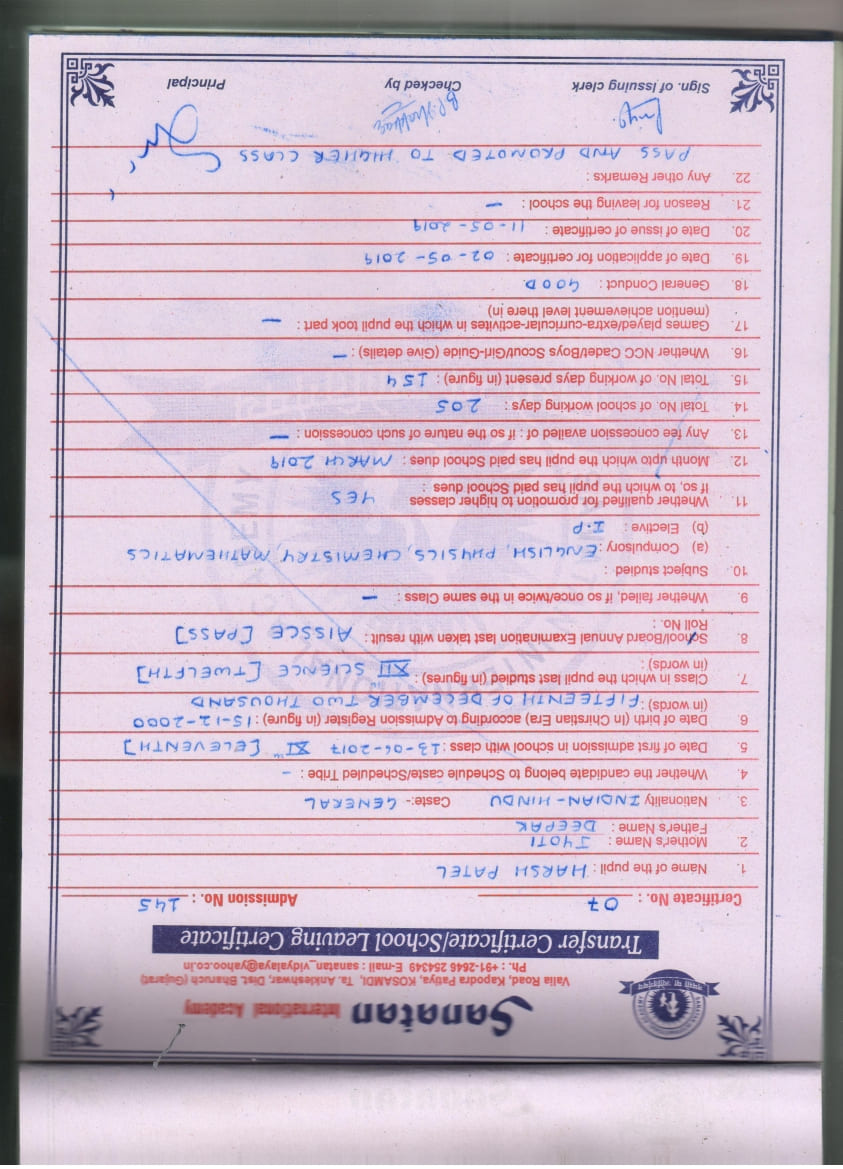 Sanatan International Academy
Valia Road, Kapodra Patiya, KOSAMDI, Ta. Ankleshwar, Dist. Bharuch (Gujarat)
Ph. : +91- 2646 254349 E-mail : sanatan_vidyalaya@yahoo.co.in
Transfer Certificate/School Leaving Certificate
Certificate No. : 07 Admission No. : 145
1. Name of the pupil : HARSH PATEL
2. Mother's Name : JYOTI
Father's Name : DEEPAK
3. Nationality INDIAN-HINDU Caste:- GENERAL
4. Whether the candidate belong to Schedule caste/Scheduled Tribe : -
5. Date of first admission in school with class : 13-06-2017 XI th [ELEVENTH]
6. Date of birth (In Chirstian Era) according to Admission Register (in figure) : 15-12-2000
(in words) : FIFTEENTH OF DECEMBER TWO THOUSAND
7. Class in which the pupil last studied (in figures) : XII SCIENCE [TWELFTH]
(in words) :
8. School/Board Annual Examination last taken with result : AISSCE [PASS]
Roll No. :
9. Whether failed, if so once/twice in the same Class : —
10. Subject studied :
(a) Compulsory : ENGLISH, PHYSICS, CHEMISTRY, MATHEMATICS
(b) Elective : I.P
11. Whether qualified for promotion to higher classes YES
If so, to which the pupil has paid School dues :
12. Month upto which the pupil has paid School dues : MARCH 2019
13. Any fee concession availed of : if so the nature of such concession : —
14. Total No. of school working days : 205
15. Total No. of working days present (in figure) : 154
16. Whether NCC Cadet/Boys Scout/Girl-Guide (Give details) : —
17. Games played/extra-curricular-activites in which the pupil took part : —
(mention achievement level there in)
18. General Conduct : GOOD
19. Date of application for certificate : 02-05-2019
20. Date of issue of certificate : 11-05-2019
21. Reason for leaving the school : —
22. Any other Remarks :
PASS AND PROMOTED TO HIGHER CLASS
Sign. of issuing clerk Checked by Principal